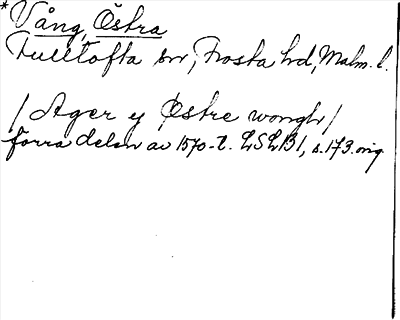 * Vång, Östra
Fulltofta sn, Frosta hd, Malm. l.
/ Ager y Østre wongh /
förra delen av 1570-t. LSLB1, s. 173. orig